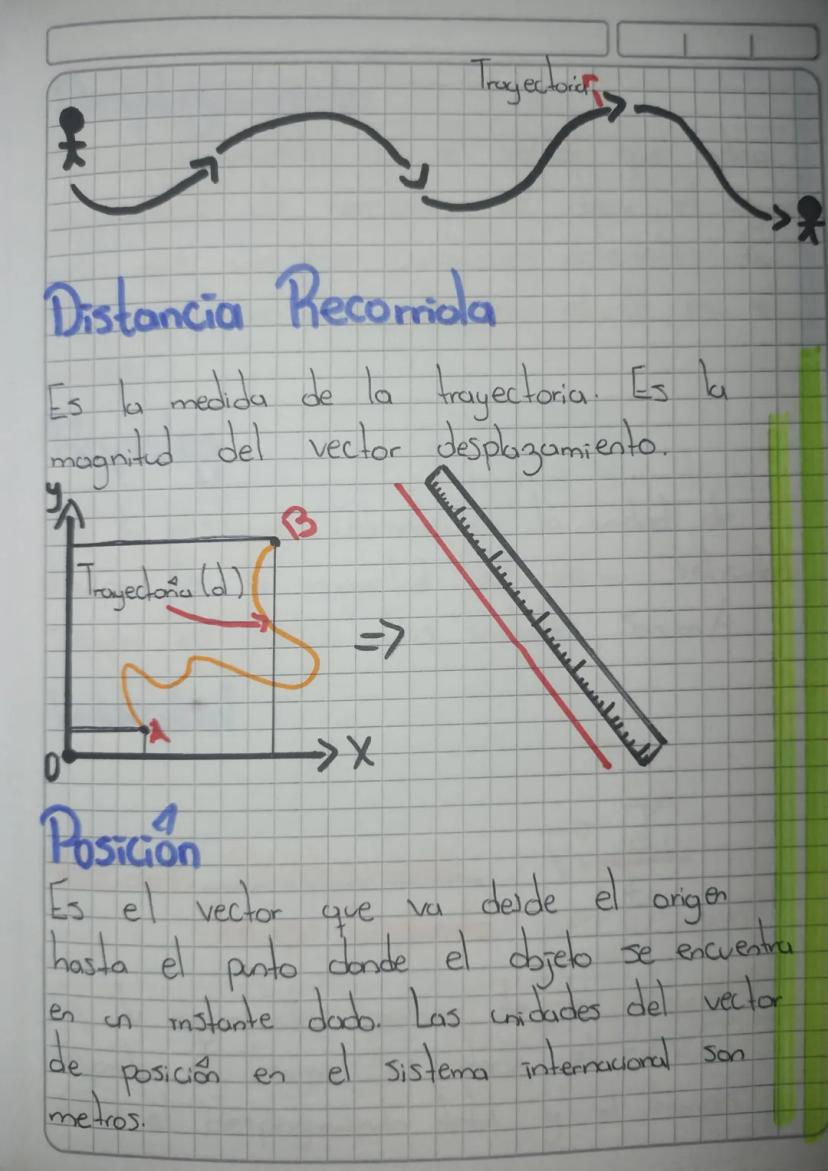 Trayectoria
Distancia Recorrida
Es la medida de la trayectoria. Es la
magnitud del vector desplazamiento.
y
B
Trayectoria (d)
=>
A
0
X
Posición
Es el vector que va desde el origen
hasta el punto donde el objeto se encuentra
en un instante dado. Las unidades del vector
de posición en el sistema internacional son
metros.